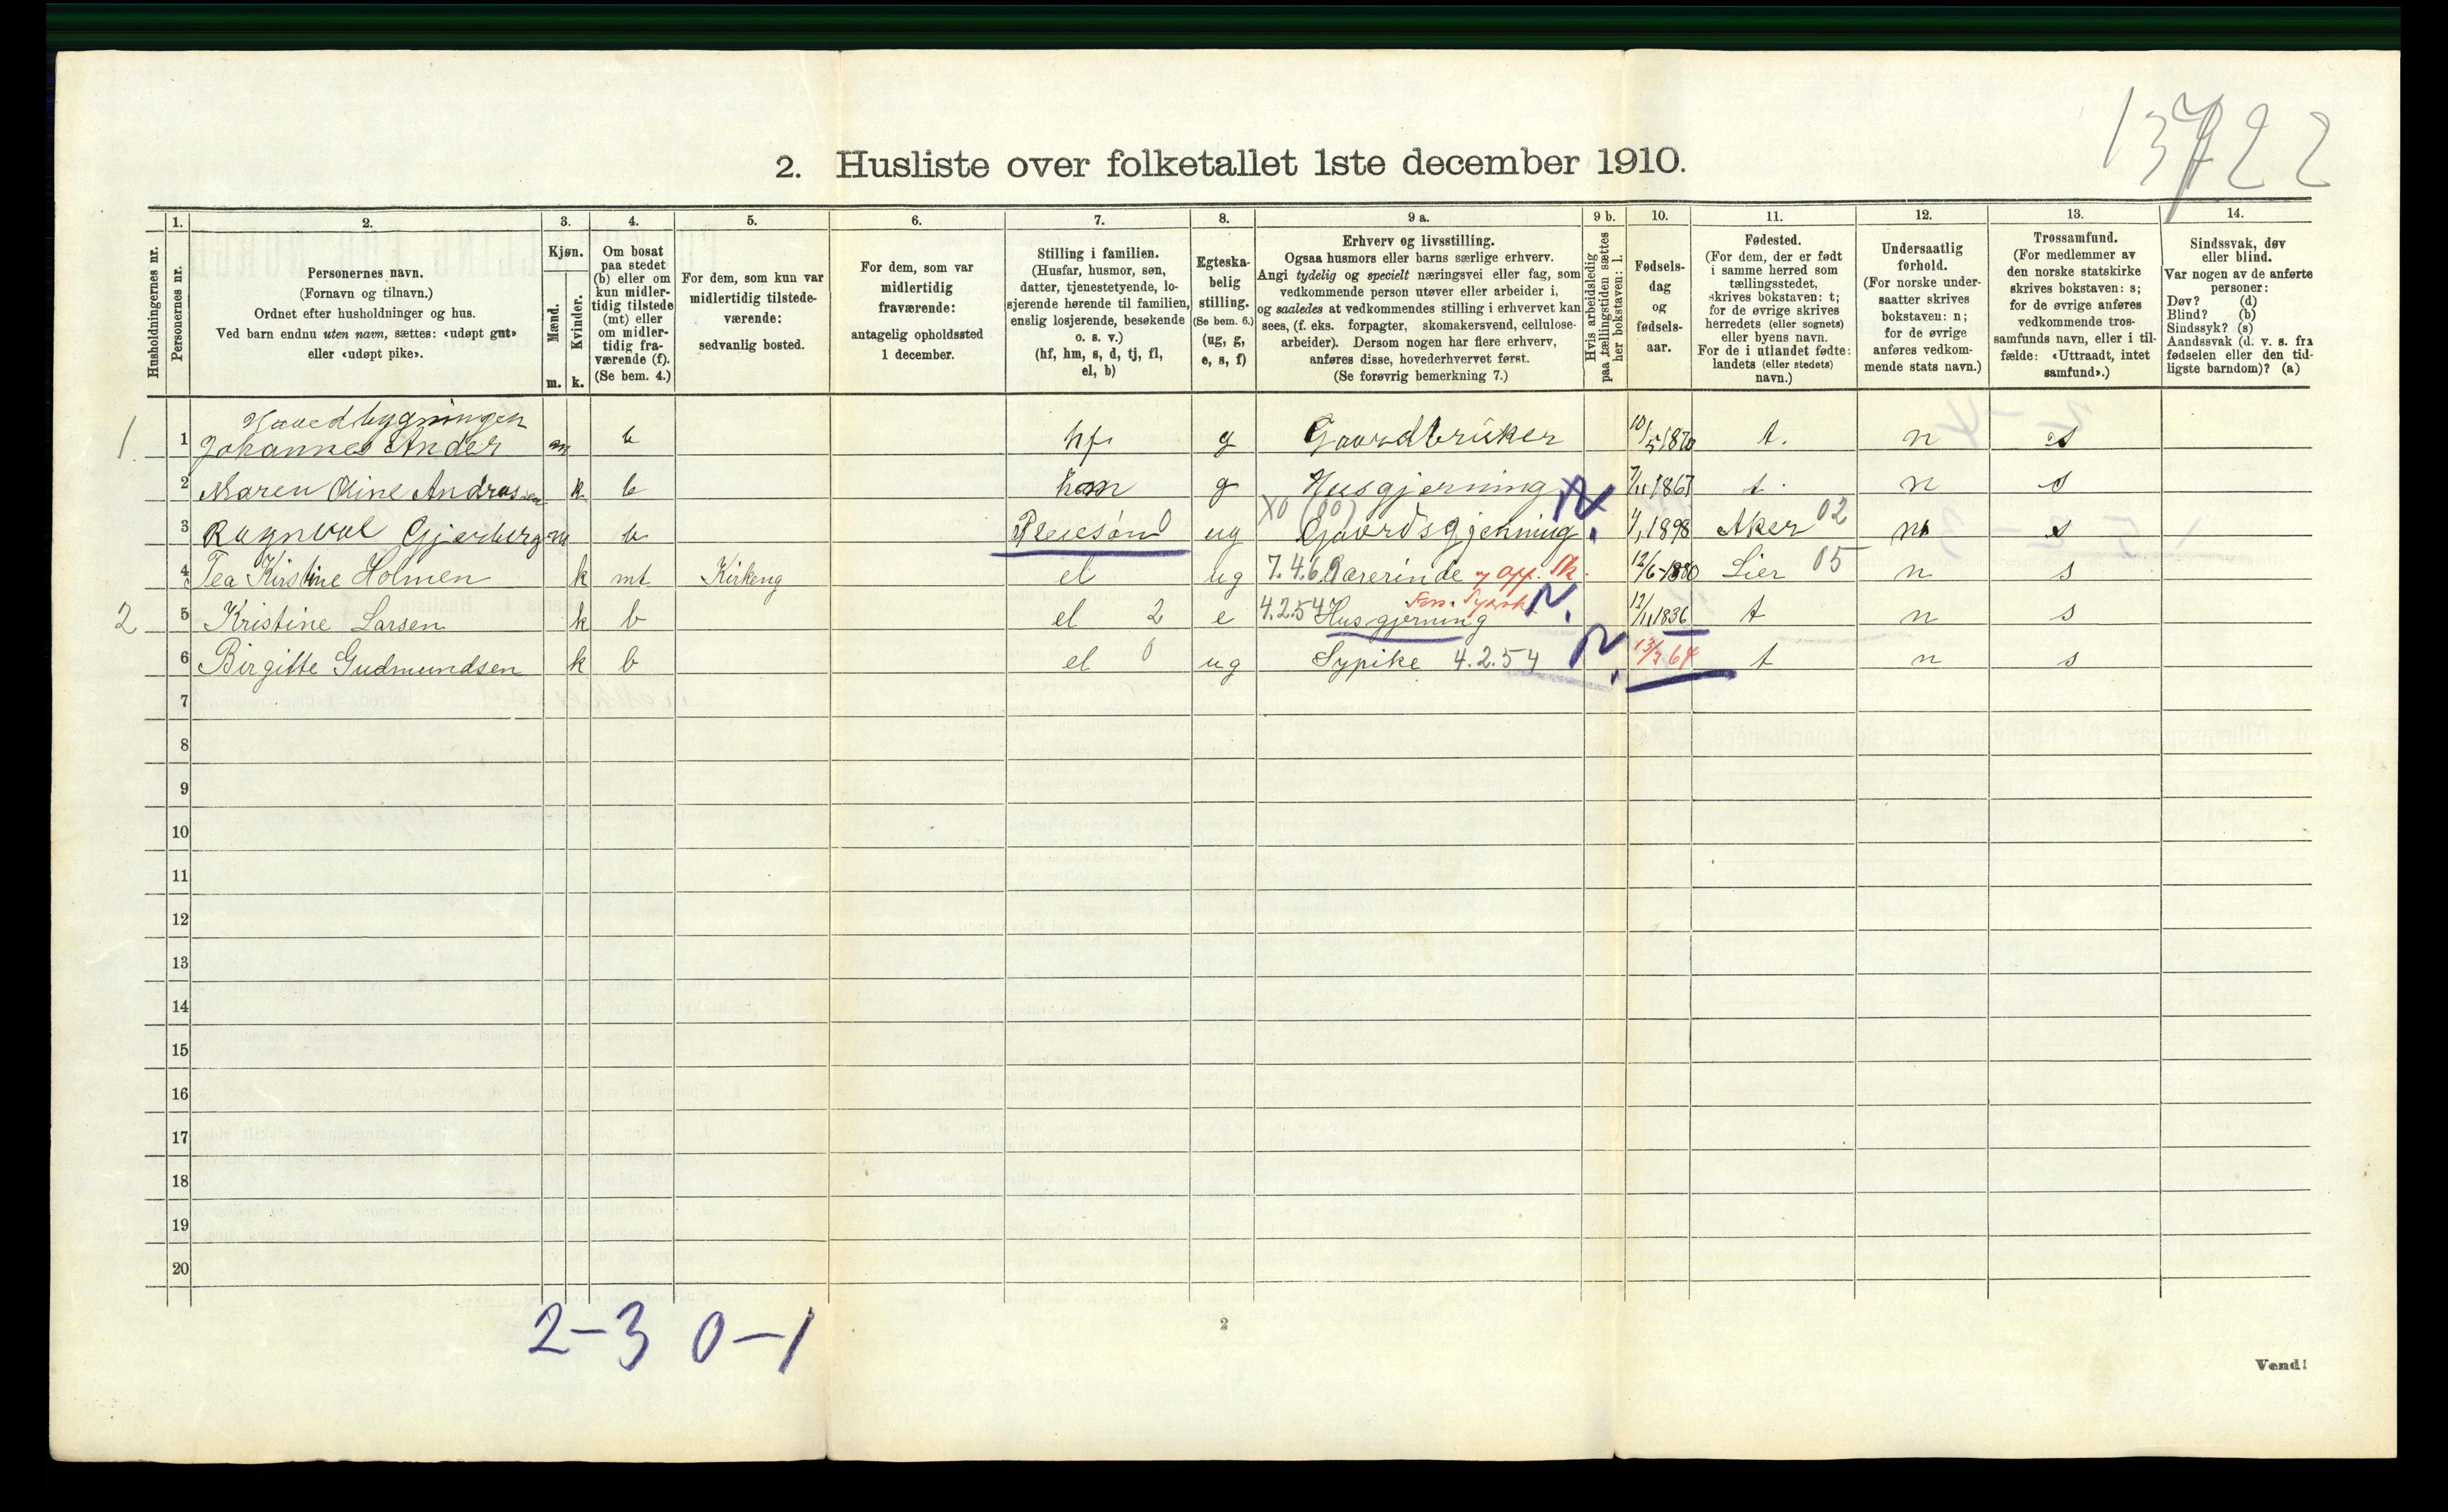 13722
2. Husliste over folketallet 1ste december 1910.
Husholdningernes nr.
1.
Personernes nr.
2.
Personernes navn.
(Fornavn og tilnavn.)
Ordnet efter husholdninger og hus.
Ved barn endnu uten navn, sættes: «udøpt gut»
eller «udøpt pike».
3.
Kjøn.
Mænd.
Kvinder.
m. k.
4.
Om bosat
paa stedet
(b) eller om
kun midler-
tidig tilstede
(mt) eller
om midler-
tidig fra-
værende (f).
(Se bem. 4.)
5.
For dem, som kun var
midlertidig tilstede-
værende:
sedvanlig bosted.
6.
For dem, som var
midlertidig
fraværende:
antagelig opholdssted
1 december.
7.
Stilling i familien.
(Husfar, husmor, søn,
datter, tjenestetyende, lo-
sjerende hørende til familien,
enslig losjerende, besøkende
o. s. v.)
(hf, hm, s, d, tj, fl,
el, b)
8.
Egteska-
belig
stilling.
(Se bem. 6.)
(ug, g,
e, s, f)
9 a.
Erhverv og livsstilling.
Ogsaa husmors eller barns særlige erhverv.
Angi tydelig og specielt næringsvei eller fag, som
vedkommende person utøver eller arbeider i,
og saaledes at vedkommendes stilling i erhvervet kan
sees, (f. eks. forpagter, skomakersvend, cellulose-
arbeider). Dersom nogen har flere erhverv,
anføres disse, hovederhvervet først.
(Se forøvrig bemerkning 7.)
9 b.
Hvis arbeidsledig
paa tællingstiden sættes
her bokstaven: l.
10.
Fødsels-
dag
og
fødsels-
aar.
11.
Fødested.
(For dem, der er født
i samme herred som
tællingsstedet,
skrives bokstaven: t;
for de øvrige skrives
herredets (eller sognets)
eller byens navn.
For de i utlandet fødte:
landets (eller stedets)
navn.)
12.
Undersaatlig
forhold.
(For norske under-
saatter skrives
bokstaven: n;
for de øvrige
anføres vedkom-
mende stats navn.)
13.
Trossamfund.
(For medlemmer av
den norske statskirke
skrives bokstaven: s;
for de øvrige anføres
vedkommende tros-
samfunds navn, eller i til-
fælde: «Uttraadt, intet
samfund».)
14.
Sindssvak, døv
eller blind.
Var nogen av de anførte
personer:
Døv? (d)
Blind? (b)
Sindssyk? (s)
Aandssvak (d. v. s. fra
fødselen eller den tid-
ligste barndom)? (a)
Hovedbygningen
1. 1 Johannes Ander m b hf g Gaardbruker 10/5 1870 t. n s
2 Maren Oline Andrassen k b hm g Husgjerning N 7/11 1867 t. n s
3 Ragnval Gjerberg m b Pleiesønd ug X0 (00) Gaardsgjerning 1/1 1898 Aker 02 n s
4 Tea Kirstine Holmen k mt Kirkeng el ug 7.4.6 Lærerinde 12/6-1880 Lier 05 n s
2 5 Kristine Larsen k b el 2 e 4.2.54 Husgjerning N. 12/11 1836 t n s
6 Birgitte Gudmundsen k b el 0 ug Sypike 4.2.54 N. 13/3 64 t n s
7
8
9
10
11
12
13
14
15
16
17
18
19
20
2-3 0-1
2
Vend!